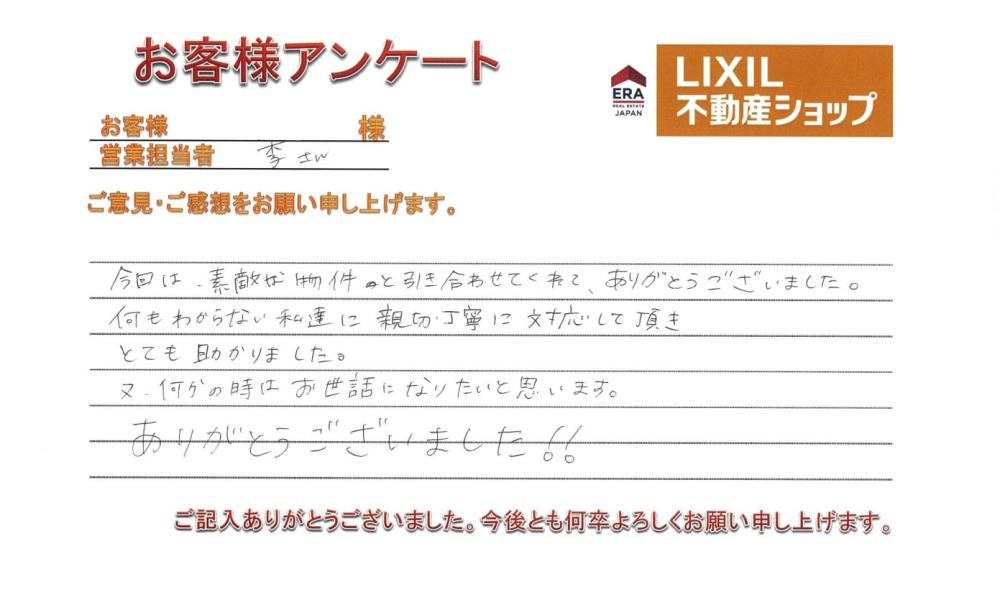 お客様アンケート
ERA
REAL ESTATE
JAPAN
LIXIL
不動産ショップ
お客様 様
営業担当者 李さん
ご意見・ご感想をお願い申し上げます。
今回は、素敵な物件のと引き合わせてくれて、ありがとうございました。
何もわからない私達に親切・丁寧に対応して頂き
とても助かりました。
又、何かの時はお世話になりたいと思います。
ありがとうございました!!
ご記入ありがとうございました。今後とも何卒よろしくお願い申し上げます。